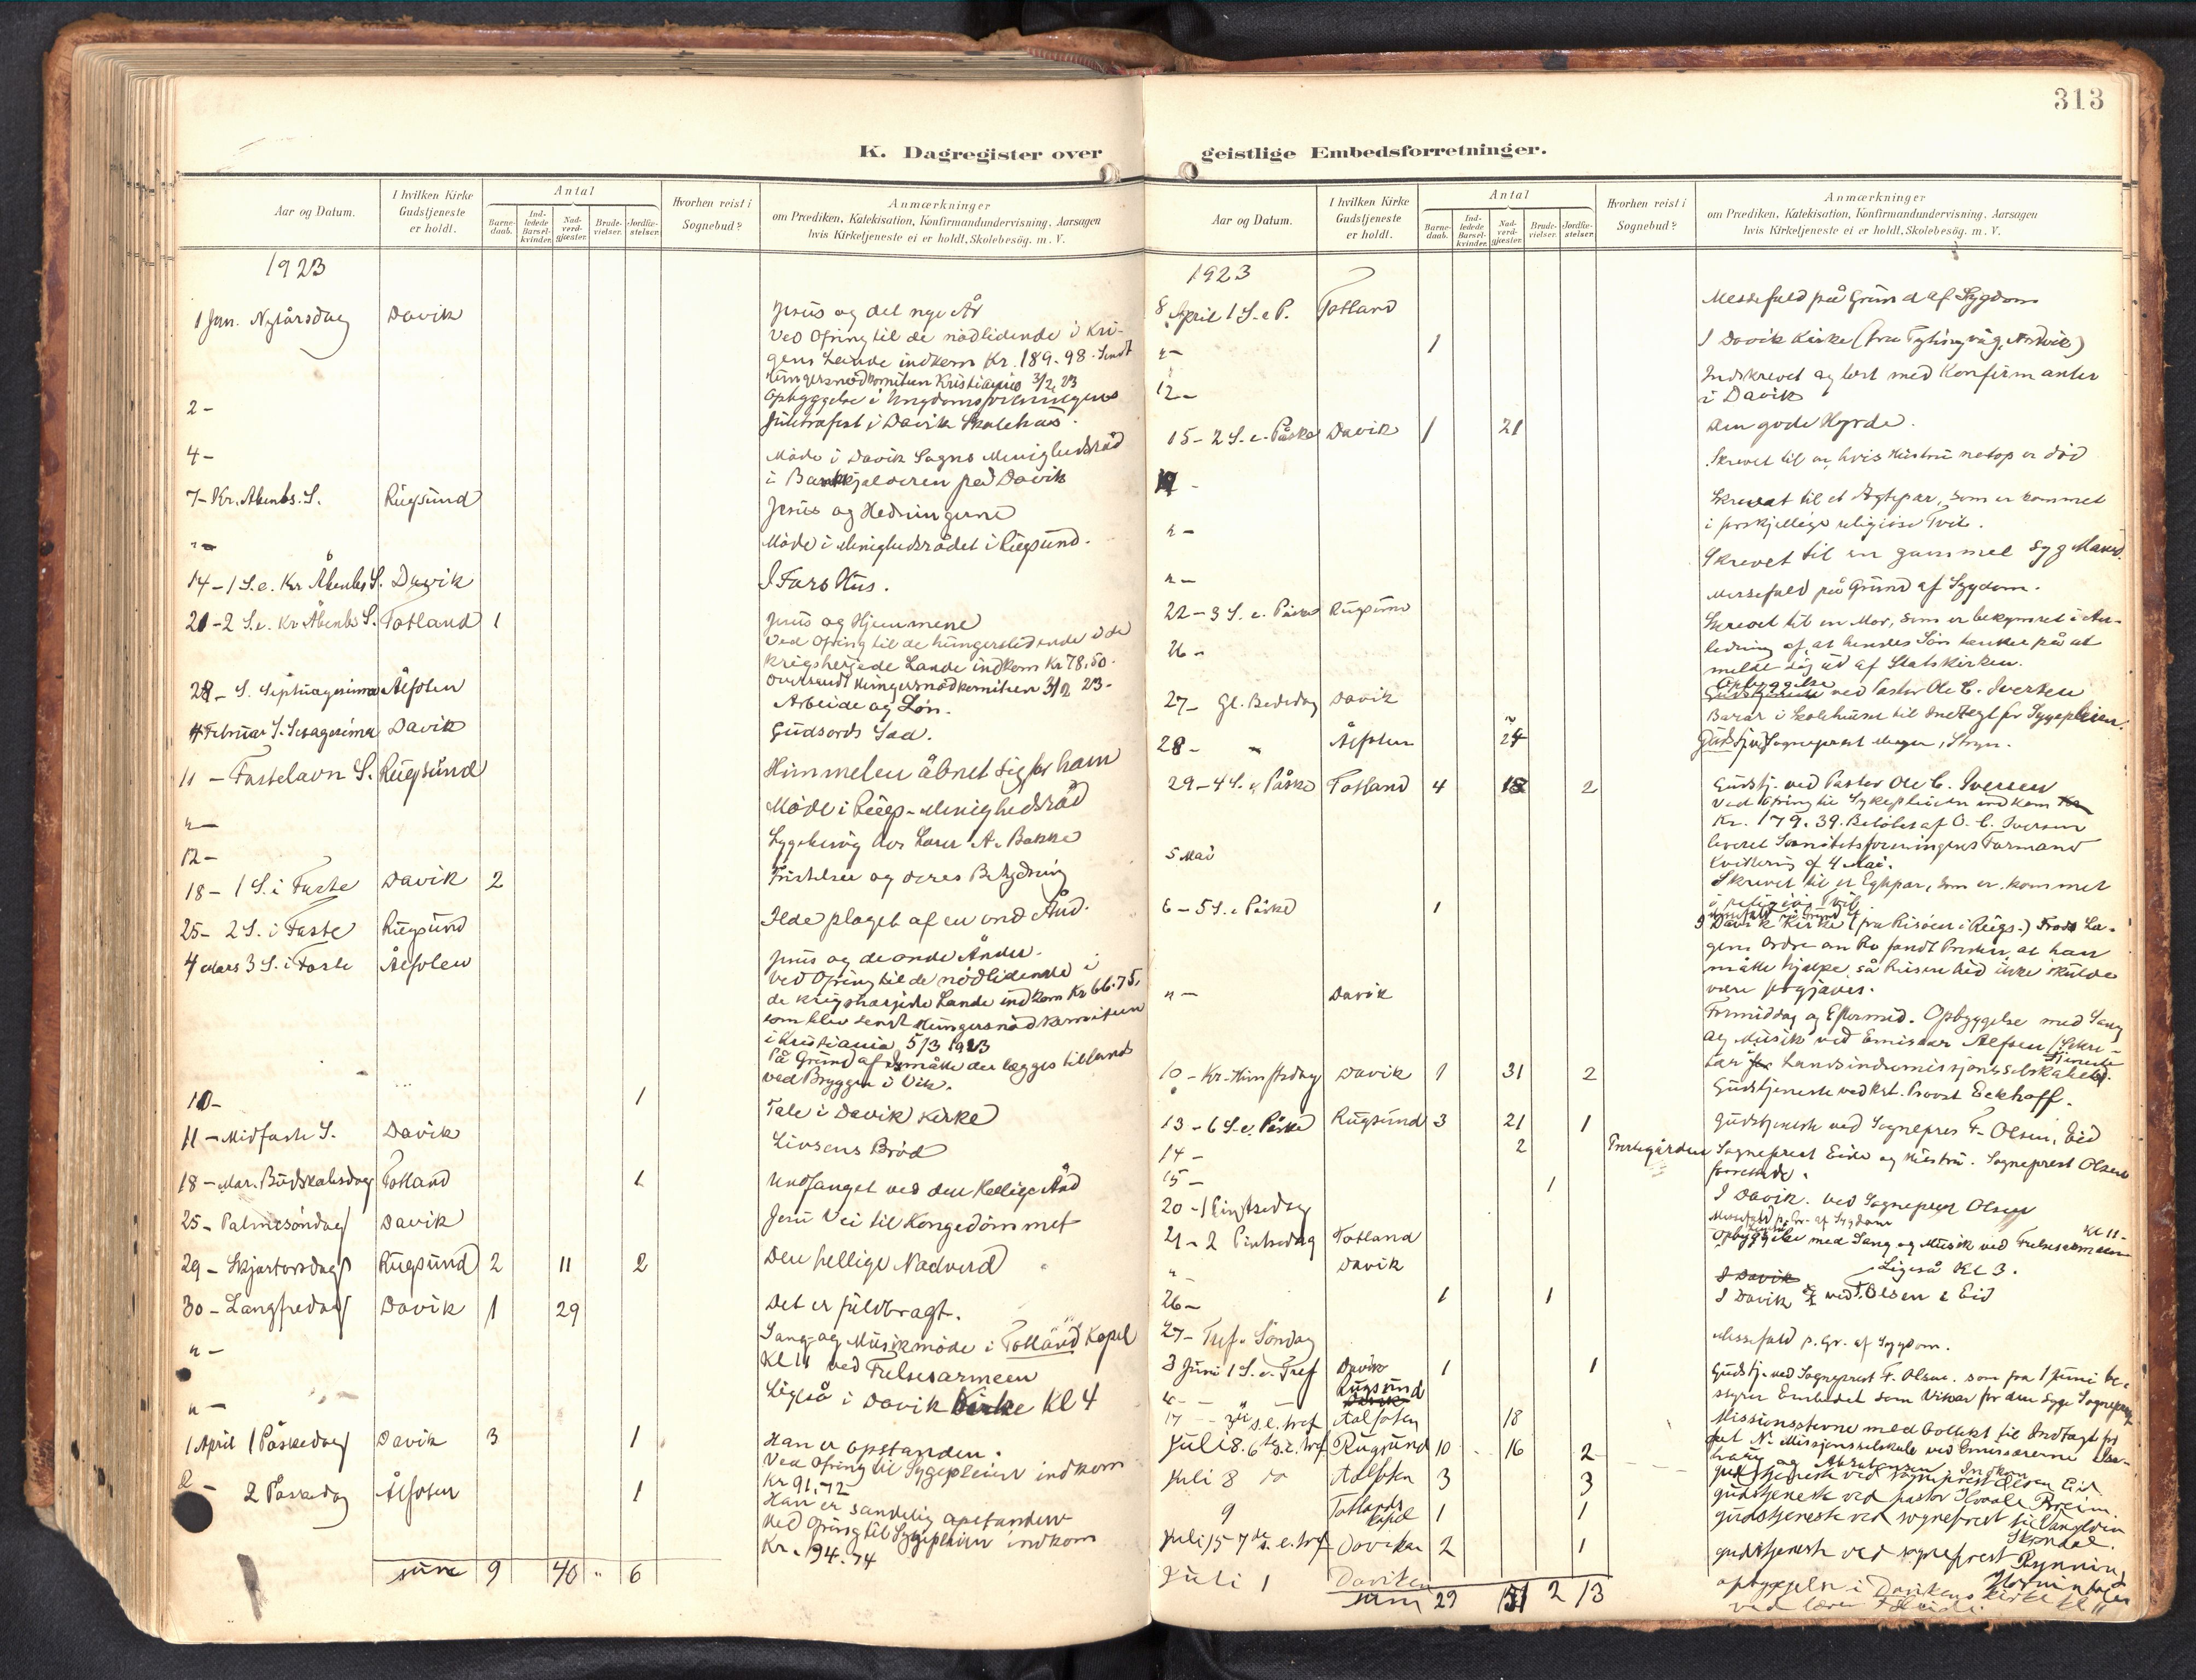 313
K. Dagregister over
geistlige Embedsforretninger.
Aar og Datum.
I hvilken Kirke
Gudstjeneste
er holdt.
Antal
Barne-
daab.
Ind-
ledede
Barsel-
kvinder.
Nad-
verd-
gjæster.
Brude-
vielser.
Jordfæ-
stelser.
Hvorhen reist i
Sognebud?
Anmærkninger
om Prædiken, Katekisation, Konfirmandundervisning, Aarsagen
hvis Kirketjeneste ei er holdt, Skolebesög. m. V.
1923
1 Jan. Nytårsdag Davik Jesus og det nye År
Ved Ofring til de nödlidende i Kri-
gens Lande indkom Kr. 189.98. Sendt
Hungersnödkomiteen Kristiania 3/2 23
2 - Opbyggelse i Ungdomsforeningens
Juletrafest i Davik Skolehus.
4 - Möde i Davik Sogns Menighedsråd
i Bankkjælderen på Davik
7 - Kr. Åbenbs. S. Rugsund Jesus og Hedningerne
" - Möde i Menighedsrådet i Rugsund.
14 - 1 S. e. Kr Åbenbs S. Davik I Fars Hus.
21 - 2 S. e. Kr Åbenbs S. Totland 1 Jesus og Hjemmene
Ved Ofring til de hungerslidende i de
krigsherjede Lande indkom Kr 78,50.
Oversendt Hungersnödkomiteen 3/2 23-
28 - S. Septuagesima Ålfoten Arbeide og Lön.
4 Februar S. Sexagesima Davik Gudsords Sæd.
11 - Fastelavn S. Rugsund Himmelen åbnet sig for ham
" - Möde i Rugs - Menighedsråd
12 - Sygebesög hos Lærer A. Bakke
18 - 1 S. i Faste Davik 2 Fristelser og deres Betydning
25 - 2 S. i Faste Rugsund Ilde plaget af en ond Ånd.
4 Mars 3 S. i Faste Ålfoten Jesus og de onde Ånder.
Ved Ofring til de nödlidende i
de krigshærjede Lande indkom Kr 66.75,
som blev sendt Hungersnödkomiteen
i Kristiania 5/3 1923
På Grund af Is måtte der lægges tillands
ved Bryggen i Vik.
10 - 1 Tale i Davik Kirke
11 - Midfaste S. Davik Livsens Bröd
18 - Mar. Budskabsdag Totland 1 Undfanget ved den Hellige Ånd
25 - Palmesöndag Davik Jesu Vei til Kongedömmet
29 - Skjærtorsdag Rugsund 2 11 2 Den hellige Nadverd
30 - Langfredag Davik 1 29 Det er fuldbragt.
" - Sang- og Musikmöde i Totland Kapel
Kl 11 ved Frelsesarmeen
" - Ligeså i Davik Kirke Kl 4
1 April 1 Påskedag Davik 3 1 Han er opstanden.
Ved Ofring til Sygepleien indkom
Kr 91.72
2 - 2 Påskedag Ålfoten 1 Han er sandelig opstanden
Ved Ofring til Sygepleien indkom
Kr. 94.74
sum 9 40 " 6
Aar og Datum.
I hvilken Kirke
Gudstjeneste
er holdt.
Antal
Barne-
daab.
Ind-
ledede
Barsel-
kvinder.
Nad-
verd-
gjæster.
Brude-
vielser.
Jordfæ-
stelser.
Hvorhen reist i
Sognebud?
Anmærkninger
om Prædiken, Katekisation, Konfirmandundervisning, Aarsagen
hvis Kirketjeneste ei er holdt, Skolebesög. m. V.
1923
8 April 1 S. e P. Totland Messefald på Grund af Sygdom
" - 1 I Davik Kirke
12 - Indskrevet og læst med Konfirmanter
i Davik
15 - 2 S. e. Påske Davik 1 21 Den gode Hyrde.
Skrevet til en, hvis Hustru netop er död
" - Skrevet til et Ægtepar, som er kommet
i forskjellige religiöse Tvil.
" - Skrevet til en gammel syg Mand.
22 - 3 S. e. Påske Rugsund Messefald på Grund af Sygdom.
26 - Skrevet til en Mor, som er bekymret i An-
ledning af, at hendes Sön tænker på at
melde sig ud af Statskirken.
27 - Gl. Bededag Davik Opbyggelse ved Pastor Ole C. Iversen
Basar i Skolehuset til Indtægt for Sygepleien.
28 - " Ålfoten 24 Gudstj. ved Sogneprest
29 - 4 S. e. Påske Totland 4 18 2 Gudstj. ved Pastor Ole C. Iversen
Ved Ofring til Sykepleien indkom
Kr. 179.39. Belöbet af O. C. Iversen
leveret Sanitetsforeningens Formand
Kvittering af 4 Mai.
5 Mai Skrevet til et Egtepar, som er kommet
i religiös Tvil.
6 - 5 S. e Påske 1 Messefald på Grund af
I Davik Kirke (fra Risöen i Rugs.) Trods Læ-
gens Ordre om Ro fandt Presten, at han
måtte hjælpe, så Reisen hid ikke skulde
være forgjæves.
" - Davik Formiddag og Eftermid. Opbyggelse med Sang
og Musik ved Emissær
Landsindremissjonsselskabet.
10 - Kr. Himlfsdag Davik 1 31 2 Gudstjeneste ved Kst. Provst Eckhoff.
13 - 6 S. e. Påske Rugsund 3 21 1 Gudstjeneste ved Sognepres F. Olsen, Eid
14 - 2 Prestegården Sogneprest Eide og Hustru. Sogneprest Olsen
forrettede.
15 - 1 I Davik. ved Sogneprest Olsen
20 - 1 Pinsedag Messefald p. Gr. af Sygdom
21 - 2 Pinsedag Totland Opbyggelse med Sang og Musik ved Frelsesarmeen Kl 11-
" - Davik Ligeså Kl 3.
26 - 1 1 I Davik ved F. Olsen Eid
27 - Tref. Söndag Messefald p. Gr. af Sygdom.
3 Juni 1 S. e. Tref Davik 1 1 Gudstj. ved Sogneprest F. Olsen. som fra 1 Juni be-
styrer Embedet som Vikar for den syge Sogneprest
" - Rugsund
17 - 3die s. e. tref Aalfoten 18 Missionsstevne med kollekt til Indtægt for
det N. Missjonsselskab ved Emissærerne
Juli 8. 6te s. e. tref. Rugsund 10 16 2 gudstjeneste ved sogneprest Olsen Eid
Juli 8 do Aalfoten 3 3 gudstjeneste ved pastor Breim.
9 Totlands kapel 1 1 gudstjeneste ved sogneprest
Juli 15 7de s. e. tref Daviken 2 1 gudstjeneste ved sogneprest Rynning
Juli 1 Daviken opbyggelse i Davikens kirke kl 11
ved lærer
sum 29 151 2 13